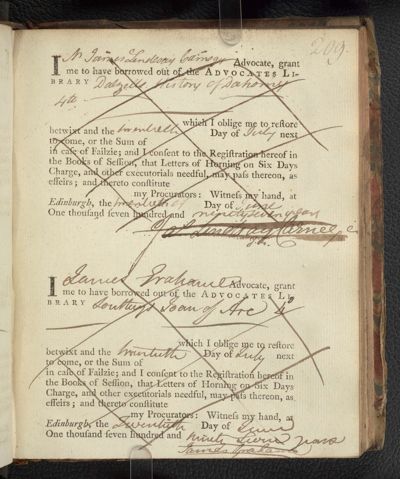 209.
I Mr James Lindesay Carnegy Advocate, grant
me to have borrowed out of the ADVOCATES LI-
BRARY Dalzells History of Dahomy
4to
which I oblige me to restore
betwixt and the twentieth Day of July next
to come, or the Sum of
in case of Failzie; and I consent to the Registration hereof in
the Books of Session, that Letters of Horning on Six Days
Charge, and other executorials needful, may pass thereon, as
effeirs; and thereto constitute
my Procurators: Witness my hand, at
Edinburgh, the twentieth Day of June
One thousand seven hundred and ninety seven years
Lindesay Carnegy
I James Grahame Advocate, grant
me to have borrowed out of the ADVOCATES LI-
BRARY Southey's Joan of Arc 4o
which I oblige me to restore
betwixt and the twentieth Day of July next
to come, or the Sum of
in case of Failzie; and I consent to the Registration hereof in
the Books of Session, that Letters of Horning on Six Days
Charge, and other executorials needful, may pass thereon, as
effeirs; and thereto constitute
my Procurators: Witness my hand, at
Edinburgh, the twentieth Day of June
One thousand seven hundred and ninety seven years
James Grahame